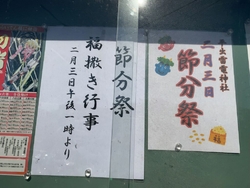 節分祭
福撒き行事
二月三日午後一時より
雷電神社
二月三日
節分祭
福